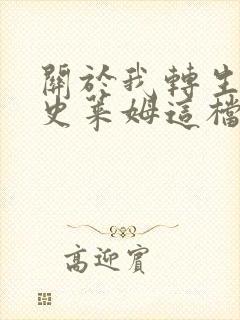 關於我轉生
史萊姆這檔
高迎賓